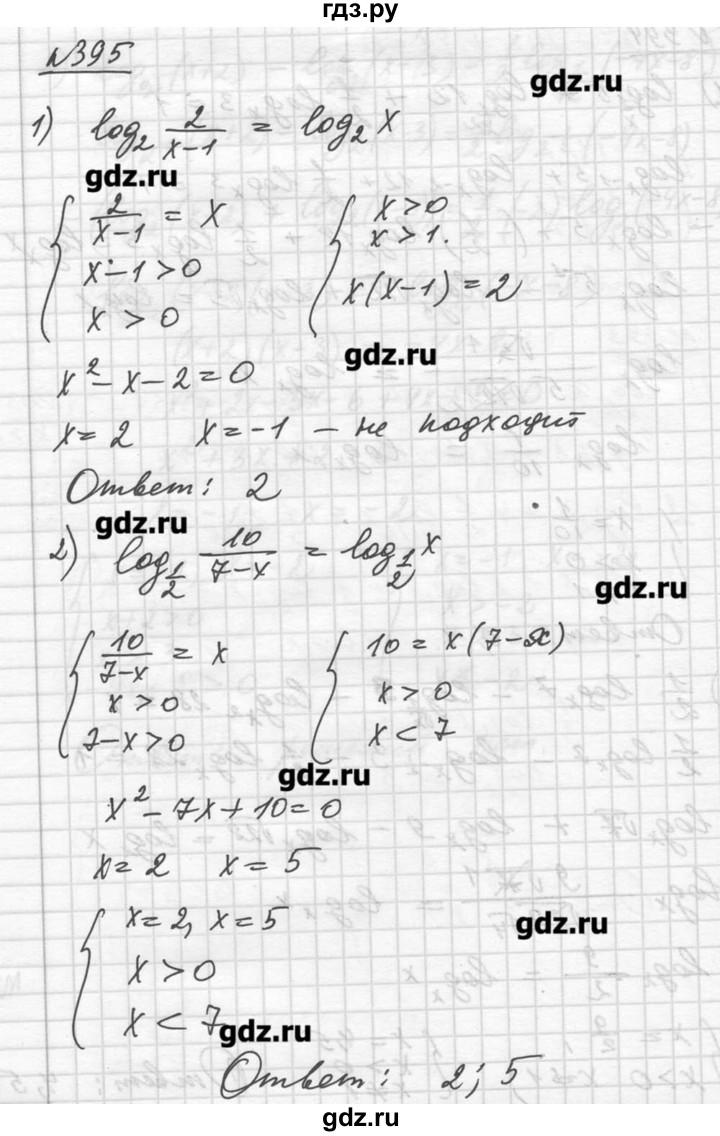 гдз.ру
№395
gdz.ru
1) log₂ 2/(x-1) = log₂ x
gdz.ru
{ 2/(x-1) = x
x-1>0
x > 0
{ x>0
x>1.
x(x-1) = 2
gdz.ru
x² - x - 2 = 0
x = 2 x = -1 — не подходит
Ответ: 2
gdz.ru
2) log_{1/2} 10/(7-x) = log_{1/2} x
gdz.ru
{ 10/(7-x) = x
x > 0
7-x>0
{ 10 = x(7-x)
x > 0
x < 7
gdz.ru
x² - 7x + 10 = 0
x = 2 x = 5
{ x = 2, x = 5
x > 0
x < 7
gdz.ru
gdz.ru
Ответ: 2; 5
gdz.ru